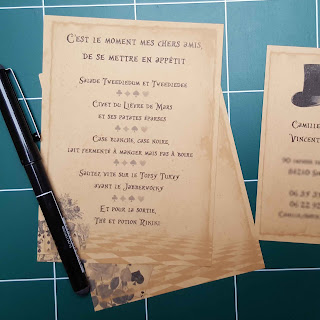 C'est le moment mes chers amis,
de se mettre en appétit
Salade Tweedledum et Tweedledee
Civet du Lièvre de Mars
et ses patates éparses
Case blanche, case noire,
lait fermenté à manger mais pas à boire
Sautez vite sur le Topsy Turvy
avant le Jabberwocky
Et pour la sortie,
Thé et potion Rikiki
Camille
Vincent